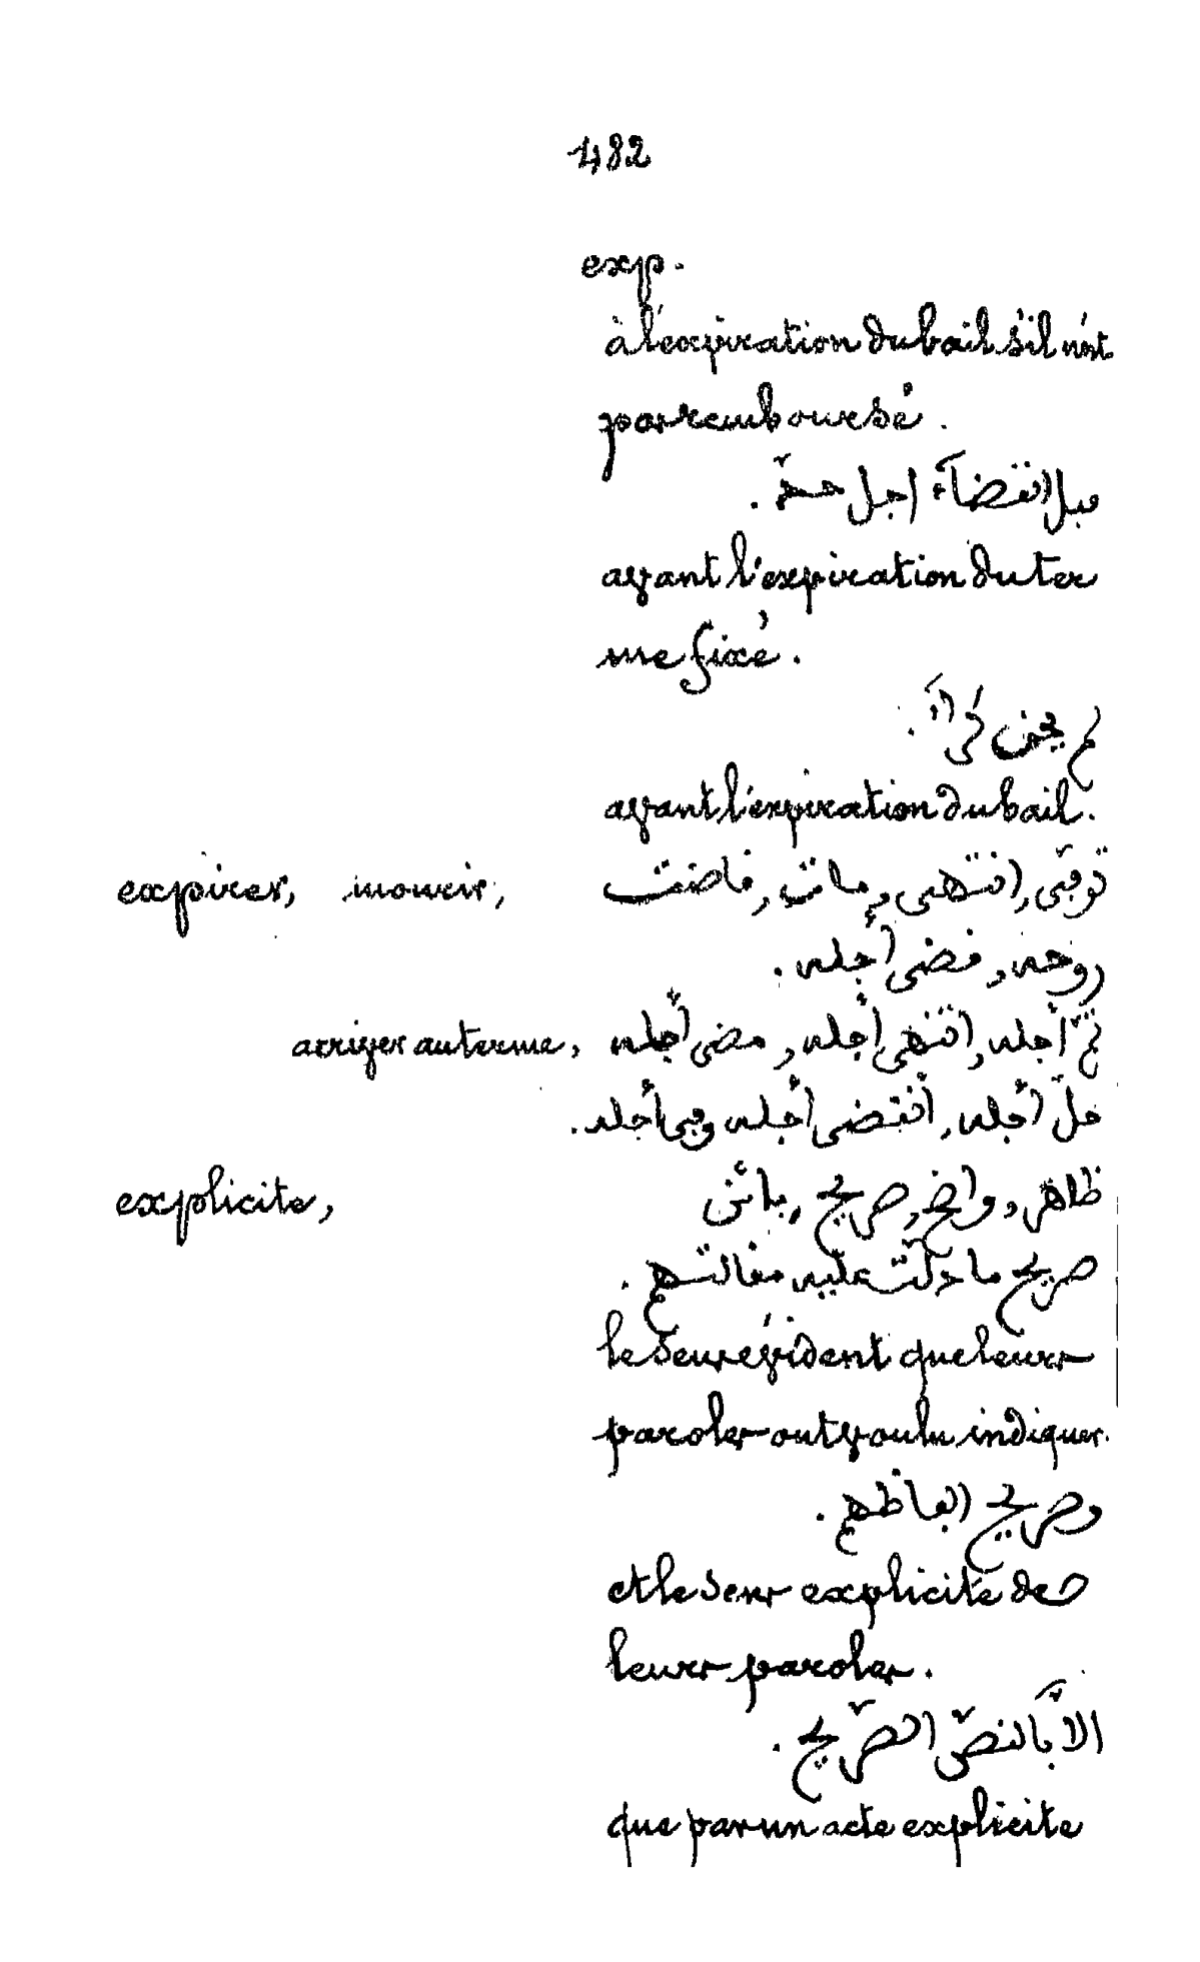 482
exp.
à l'expiration du bail s'il n'est
pas remboursé.
قبل انقضآء اجل حدّ.
avant l'expiration du ter
me fixé.
لم يحن كرآء.
avant l'expiration du bail.
expirer, mourir, توفّى, انتهى, مات, فاضت
روحه, قضى أجله.
arriver au terme, تمّ أجله, انتهى أجله, مضى أجله
حلّ أجله, انقضى أجله وفى أجله.
explicite, ظاهر, واضح, صريح, بائن
صريح ما دلّت عليه مقالتهم.
le sens évident que leurs
paroles ont voulu indiquer.
وصريح الفاظهم.
et le sens explicite de
leurs paroles.
الاّ بالنصّ الصّريح.
que par un acte explicite